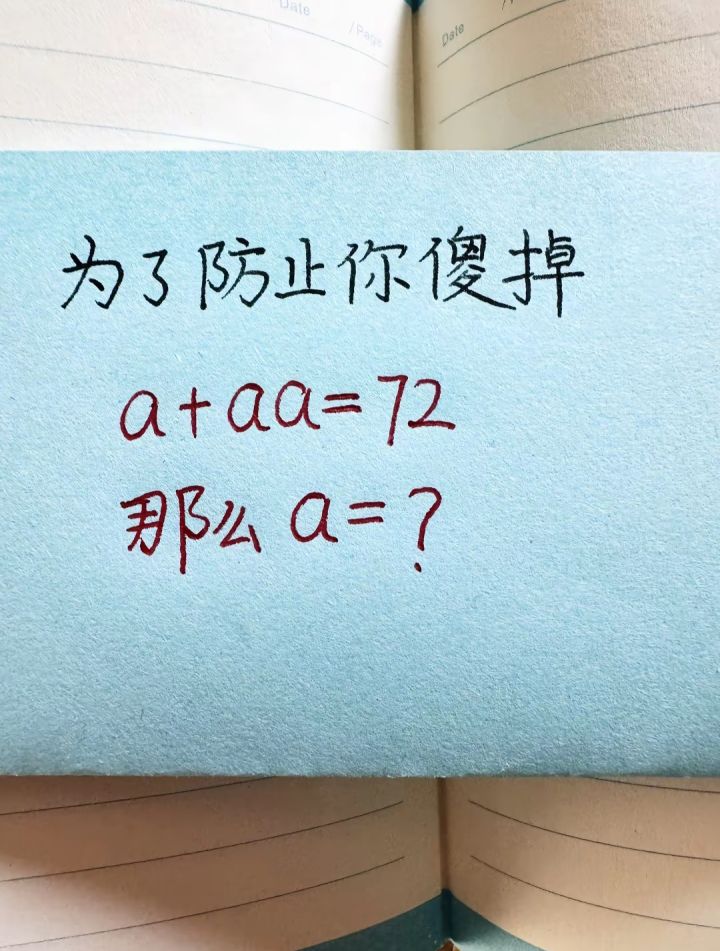 Date /Page Date
为了防止你傻掉
a+aa=72
那么a=?